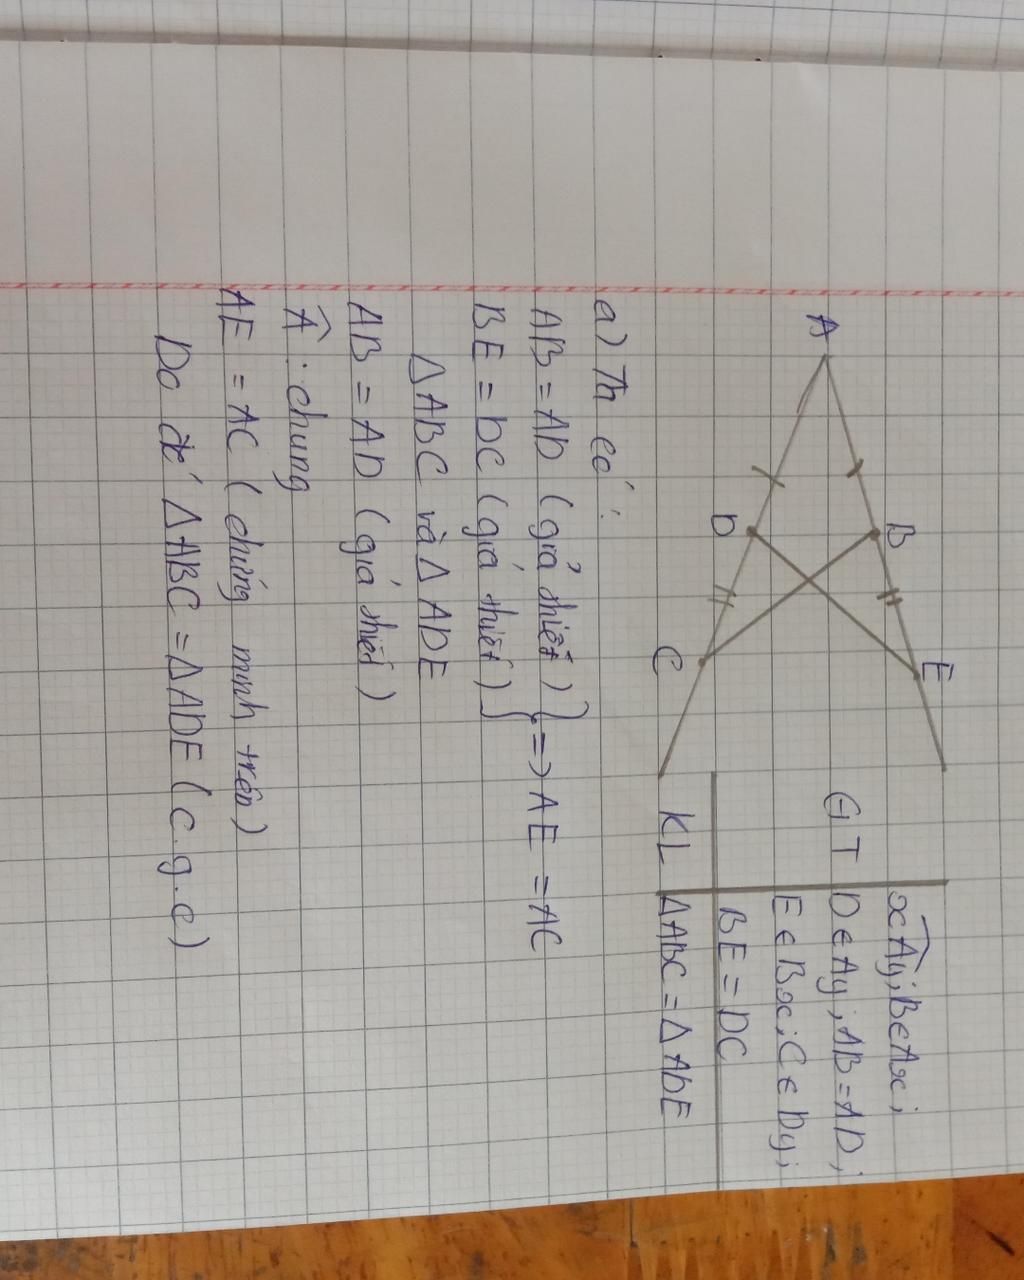 A
B
E
D
C
GT
xAy; B∈Ax;
D∈Ay; AB=AD;
E∈Bx; C∈Dy;
BE = DC
KL
ΔABC = ΔADE
a) Ta có:
AB = AD (giả thiết)
BE = DC (giả thiết)
} => AE = AC
ΔABC và Δ ADE
AB = AD (giả thiết)
Â: chung
AE = AC (chứng minh trên)
Do đó ΔABC = ΔADE (c.g.c)